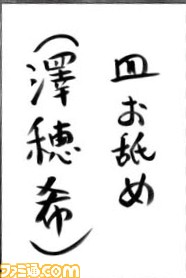 皿お舐め
(澤穂希)
ファミ通.com